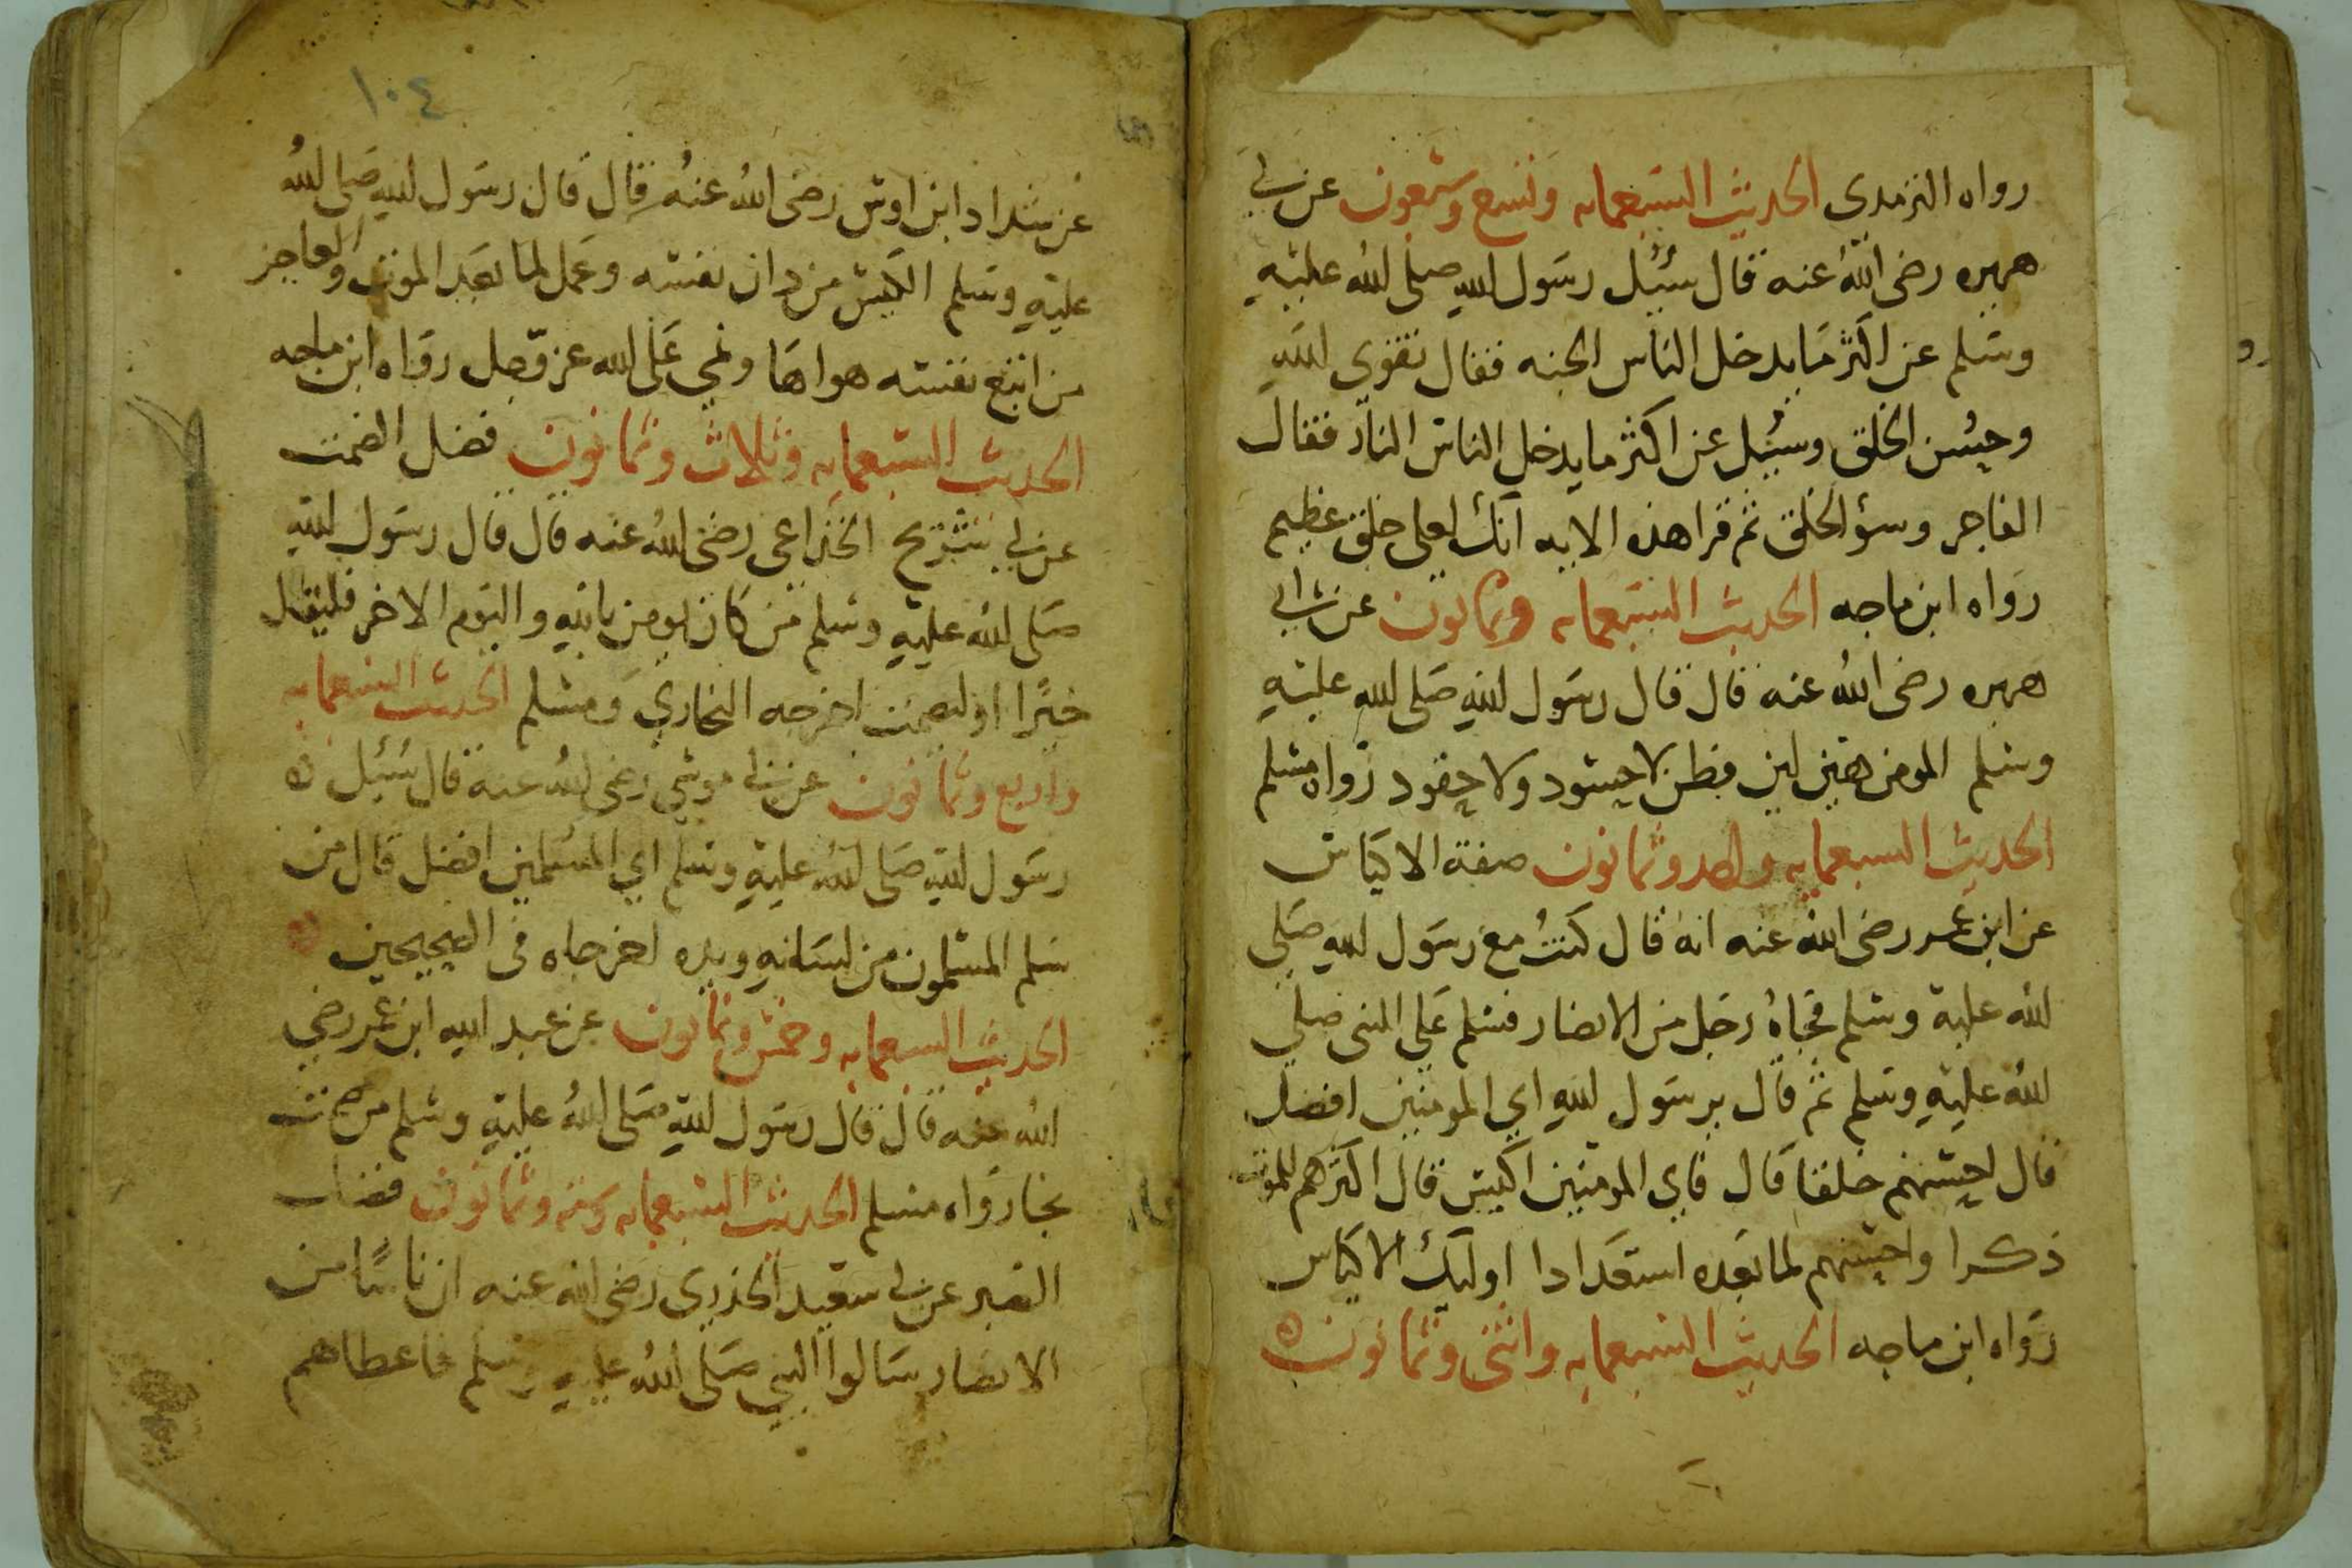 رواه الترمدى الحديث السبعمايه وتسع وسبعون عن ابي
هريره رضى الله عنه قال سئيل رسول الله صلى الله عليه
وسلم عن اكثر ما يدخل الناس الجنه فقال تقوى الله
وحسن الخلق وسئيل عن اكثر ما يدخل الناس النار فقال
الفاجر وسؤ الخلق ثم قرا هذه الايه انك لعلى خلق عظيم
رواه ابن ماجه الحديث السبعمايه وثمانون عن ابي
هريره رضى الله عنه قال قال رسول الله صلى الله عليه
وسلم المومن هين لين فطن لا حسود ولا حقود رواه مسلم
الحديث السبعمايه واحد وثمانون صفة الاكياس
عن ابن عمر رضى الله عنه انه قال كنت مع رسول الله صلى
الله عليه وسلم فجاه رجل من الانصار فسلم على النبى صلى
الله عليه وسلم ثم قال يرسول الله اي المومنين افضل
قال احسنهم خلقا قال فاي المومنين اكيس قال اكثرهم للموت
ذكرا واحسنهم لما بعده استعدادا اوليك الاكياس
رواه ابن ماجه الحديث السبعمايه واثنى وثمانون
١٠٤
عن شداد ابن اوس رضى الله عنه قال قال رسول الله صلى الله
عليه وسلم الكيس من دان نفسه وعمل لما بعد الموت والعاجز
من اتبع نفسه هواها وتمى على الله عز وجل رواه ابن ماجه
الحديث السبعمايه وثلاث وثمانون فضل الصمت
عن ابي شريح الخزاعى رضى الله عنه قال قال رسول الله
صلى الله عليه وسلم من كان يومن بالله واليوم الاخر فليقل
خيرا او ليصمت اخرجه البخاري ومسلم الحديث السبعمايه
واربع وثمانون عن ابي موسى رضى الله عنه قال سئيل
رسول الله صلى الله عليه وسلم اي المسلمين افضل قال من
سلم المسلمون من لسانه ويده اخرجاه فى الصحيحين
الحديث السبعمايه وخمس وثمانون عن عبد الله ابن عمر رضي
الله عنه قال قال رسول الله صلى الله عليه وسلم من صمت
نجا رواه مسلم الحديث السبعمايه وسته وثمانون فضل
الصبر عن ابي سعيد الخدري رضى الله عنه ان ناسا من
الانصار سالوا النبي صلى الله عليه وسلم فاعطاهم